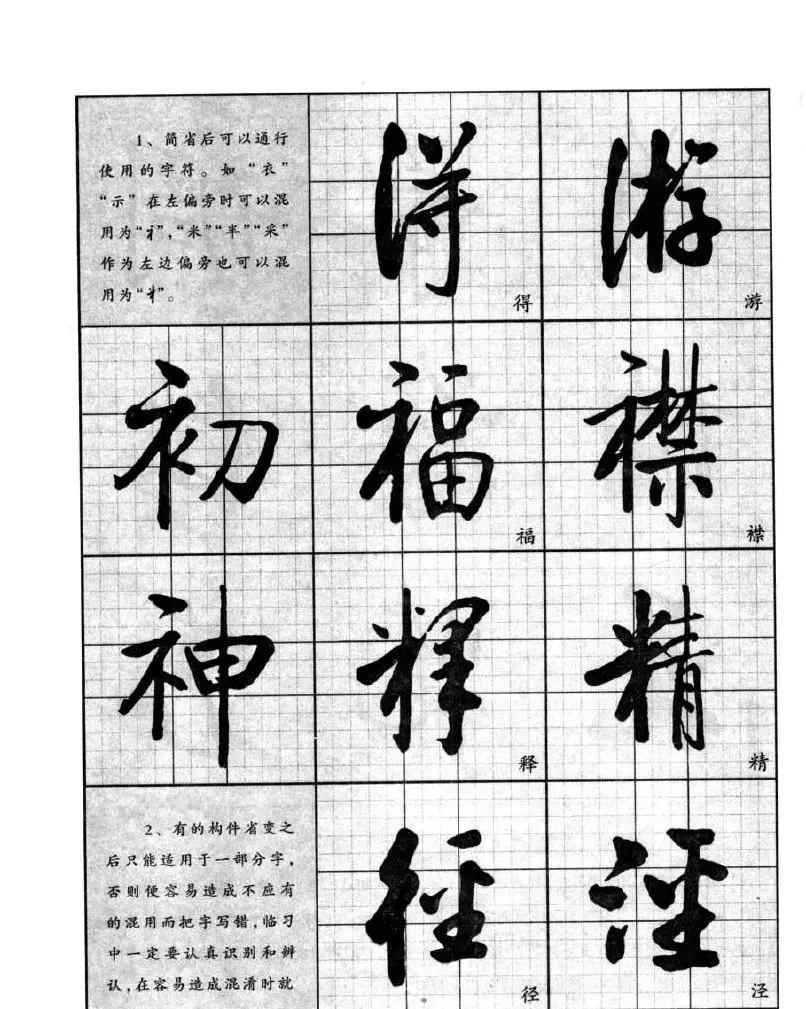 1、简省后可以通行
使用的字符。如“衣”
“示”在左偏旁时可以混
用为“礻”，“米”“半”“采”
作为左边偏旁也可以混
用为“丬”。
得 游
得 游
初 福 襟
福 襟
神 释 精
释 精
2、有的构件省变之
后只能适用于一部分字，
否则便容易造成不应有
的混用而把字写错，临习
中一定要认真识别和辨
认，在容易造成混淆时就
径 泾
径 泾